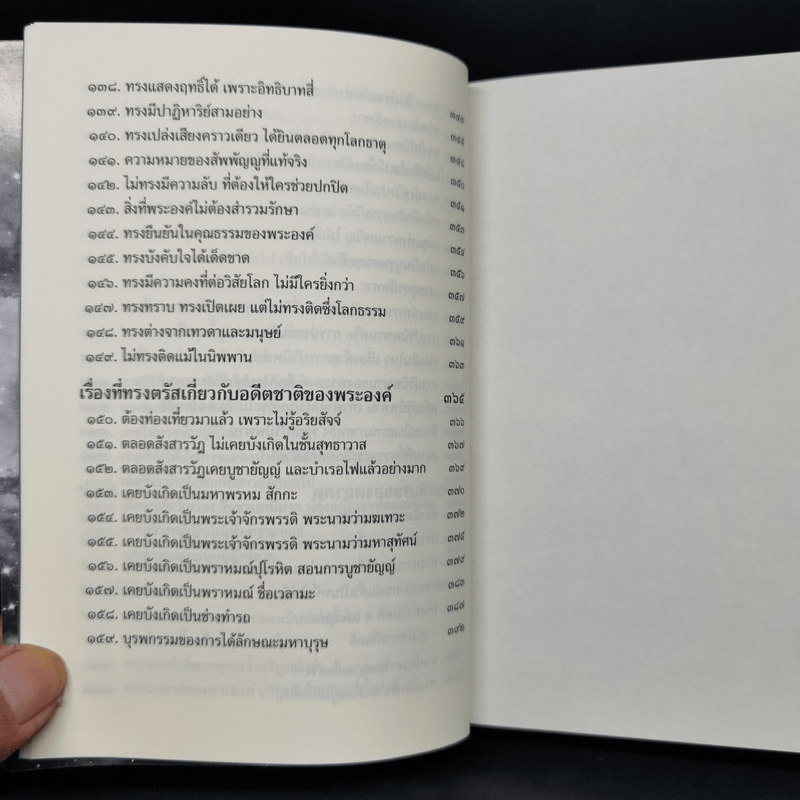 ๑๓๘. ทรงแสดงฤทธิ์ได้ เพราะอิทธิบาทสี่ ๓๔๓
๑๓๙. ทรงมีปาฏิหาริย์สามอย่าง ๓๔๕
๑๔๐. ทรงเปล่งเสียงคราวเดียว ได้ยินตลอดทุกโลกธาตุ ๓๔๘
๑๔๑. ความหมายของสัพพัญญูที่แท้จริง ๓๕๐
๑๔๒. ไม่ทรงมีความลับ ที่ต้องให้ใครช่วยปกปิด ๓๕๑
๑๔๓. สิ่งที่พระองค์ไม่ต้องสำรวมรักษา ๓๕๓
๑๔๔. ทรงยืนยันในคุณธรรมของพระองค์ ๓๕๔
๑๔๕. ทรงบังคับใจได้เด็ดขาด ๓๕๖
๑๔๖. ทรงมีความคงที่ต่อวิสัยโลก ไม่มีใครยิ่งกว่า ๓๕๗
๑๔๗. ทรงทราบ ทรงเปิดเผย แต่ไม่ทรงติดซึ่งโลกธรรม ๓๕๙
๑๔๘. ทรงต่างจากเทวดาและมนุษย์ ๓๖๑
๑๔๙. ไม่ทรงติดแม้ในนิพพาน ๓๖๓
เรื่องที่ทรงตรัสเกี่ยวกับอดีตชาติของพระองค์ ๓๖๕
๑๕๐. ต้องท่องเที่ยวมาแล้ว เพราะไม่รู้อริยสัจจ์ ๓๖๖
๑๕๑. ตลอดสังสารวัฏ ไม่เคยบังเกิดในชั้นสุทธาวาส ๓๖๗
๑๕๒. ตลอดสังสารวัฏเคยบูชายัญญ์ และบำเรอไฟแล้วอย่างมาก ๓๖๙
๑๕๓. เคยบังเกิดเป็นมหาพรหม สักกะ ๓๗๐
๑๕๔. เคยบังเกิดเป็นพระเจ้าจักรพรรดิ พระนามว่ามฆเทวะ ๓๗๒
๑๕๕. เคยบังเกิดเป็นพระเจ้าจักรพรรดิ พระนามว่ามหาสุทัศน์ ๓๗๕
๑๕๖. เคยบังเกิดเป็นพราหมณ์ปุโรหิต สอนการบูชายัญญ์ ๓๗๙
๑๕๗. เคยบังเกิดเป็นพราหมณ์ ชื่อเวลามะ ๓๘๓
๑๕๘. เคยบังเกิดเป็นช่างทำรถ ๓๘๗
๑๕๙. บุรพกรรมของการได้ลักษณะมหาบุรุษ ๓๙๒